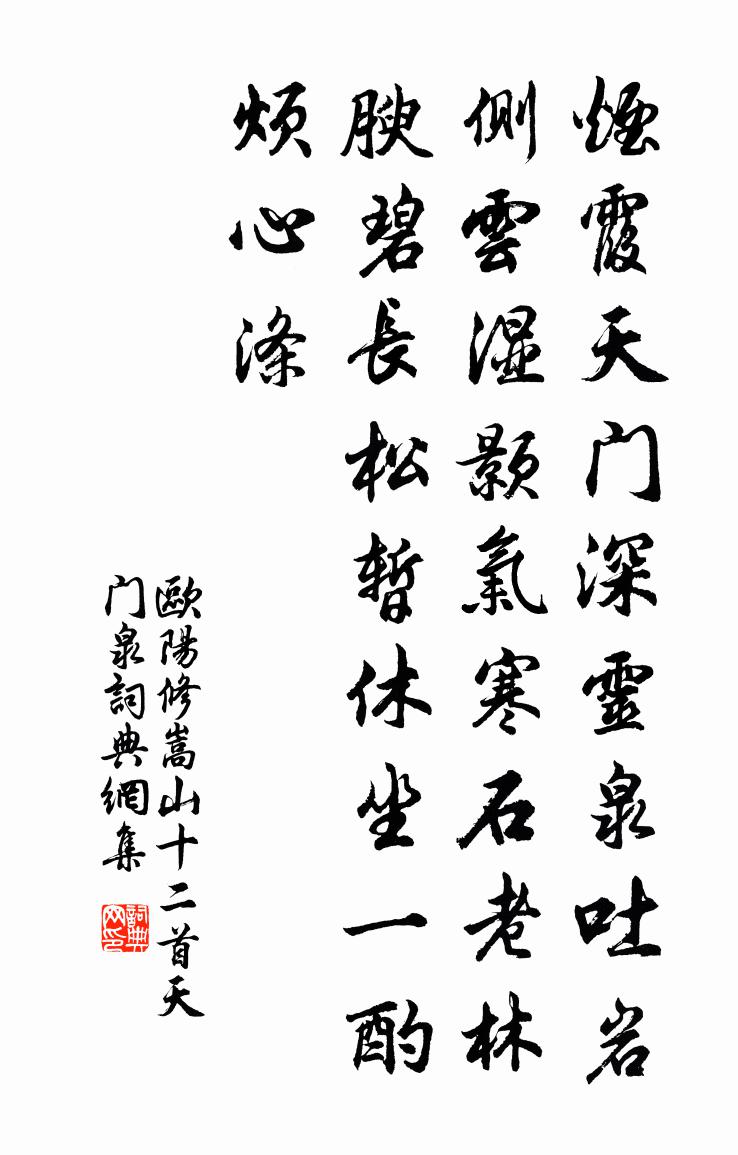 煙霞天门深靈泉吐岩
側雲湿顥氣寒石老林
腴碧長松暫休坐一酌
煩心滌
歐陽修嵩山十二首天
门泉詞典網集
詞典
网印